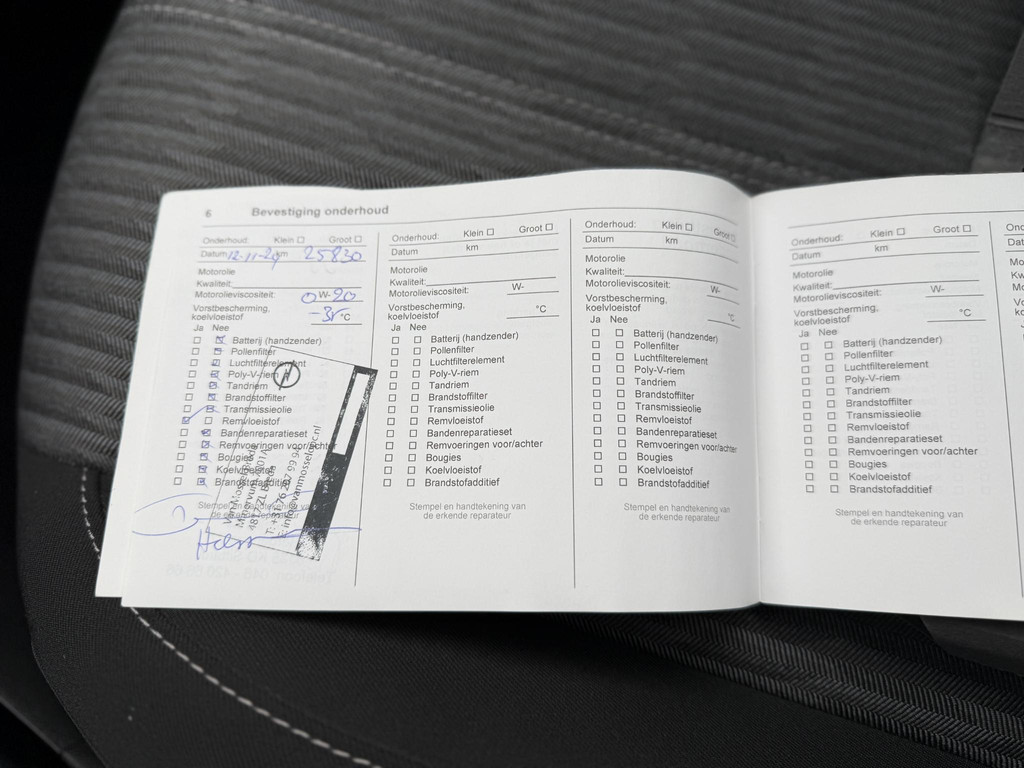 6 Bevestiging onderhoud
Onderhoud: Klein ☐ Groot ☐
Datum 12-11-24 km 25830
Motorolie
Kwaliteit:
Motorolieviscositeit: 0 W- 20
Vorstbescherming,
koelvloeistof -35 °C
Ja Nee
☐ ☑ Batterij (handzender)
☐ ☑ Pollenfilter
☐ ☑ Luchtfilterelement
☐ ☑ Poly-V-riem
☐ ☑ Tandriem
☐ ☑ Brandstoffilter
☐ ☑ Transmissieolie
☑ ☐ Remvloeistof
☐ ☑ Bandenreparatieset
☐ ☑ Remvoeringen voor/achter
☐ ☑ Bougies
☐ ☑ Koelvloeistof
☐ ☑ Brandstofadditief
Stempel en handtekening van
de erkende reparateur
Onderhoud: Klein ☐ Groot ☐
Datum km
Motorolie
Kwaliteit:
Motorolieviscositeit: W-
Vorstbescherming,
koelvloeistof °C
Ja Nee
☐ ☐ Batterij (handzender)
☐ ☐ Pollenfilter
☐ ☐ Luchtfilterelement
☐ ☐ Poly-V-riem
☐ ☐ Tandriem
☐ ☐ Brandstoffilter
☐ ☐ Transmissieolie
☐ ☐ Remvloeistof
☐ ☐ Bandenreparatieset
☐ ☐ Remvoeringen voor/achter
☐ ☐ Bougies
☐ ☐ Koelvloeistof
☐ ☐ Brandstofadditief
Stempel en handtekening van
de erkende reparateur
Onderhoud: Klein ☐ Groot ☐
Datum km
Motorolie
Kwaliteit:
Motorolieviscositeit: W-
Vorstbescherming,
koelvloeistof °C
Ja Nee
☐ ☐ Batterij (handzender)
☐ ☐ Pollenfilter
☐ ☐ Luchtfilterelement
☐ ☐ Poly-V-riem
☐ ☐ Tandriem
☐ ☐ Brandstoffilter
☐ ☐ Transmissieolie
☐ ☐ Remvloeistof
☐ ☐ Bandenreparatieset
☐ ☐ Remvoeringen voor/achter
☐ ☐ Bougies
☐ ☐ Koelvloeistof
☐ ☐ Brandstofadditief
Stempel en handtekening van
de erkende reparateur
Onderhoud: Klein ☐ Groot ☐
Datum km
Motorolie
Kwaliteit:
Motorolieviscositeit: W-
Vorstbescherming,
koelvloeistof °C
Ja Nee
☐ ☐ Batterij (handzender)
☐ ☐ Pollenfilter
☐ ☐ Luchtfilterelement
☐ ☐ Poly-V-riem
☐ ☐ Tandriem
☐ ☐ Brandstoffilter
☐ ☐ Transmissieolie
☐ ☐ Remvloeistof
☐ ☐ Bandenreparatieset
☐ ☐ Remvoeringen voor/achter
☐ ☐ Bougies
☐ ☐ Koelvloeistof
☐ ☐ Brandstofadditief
Stempel en handtekening van
de erkende reparateur